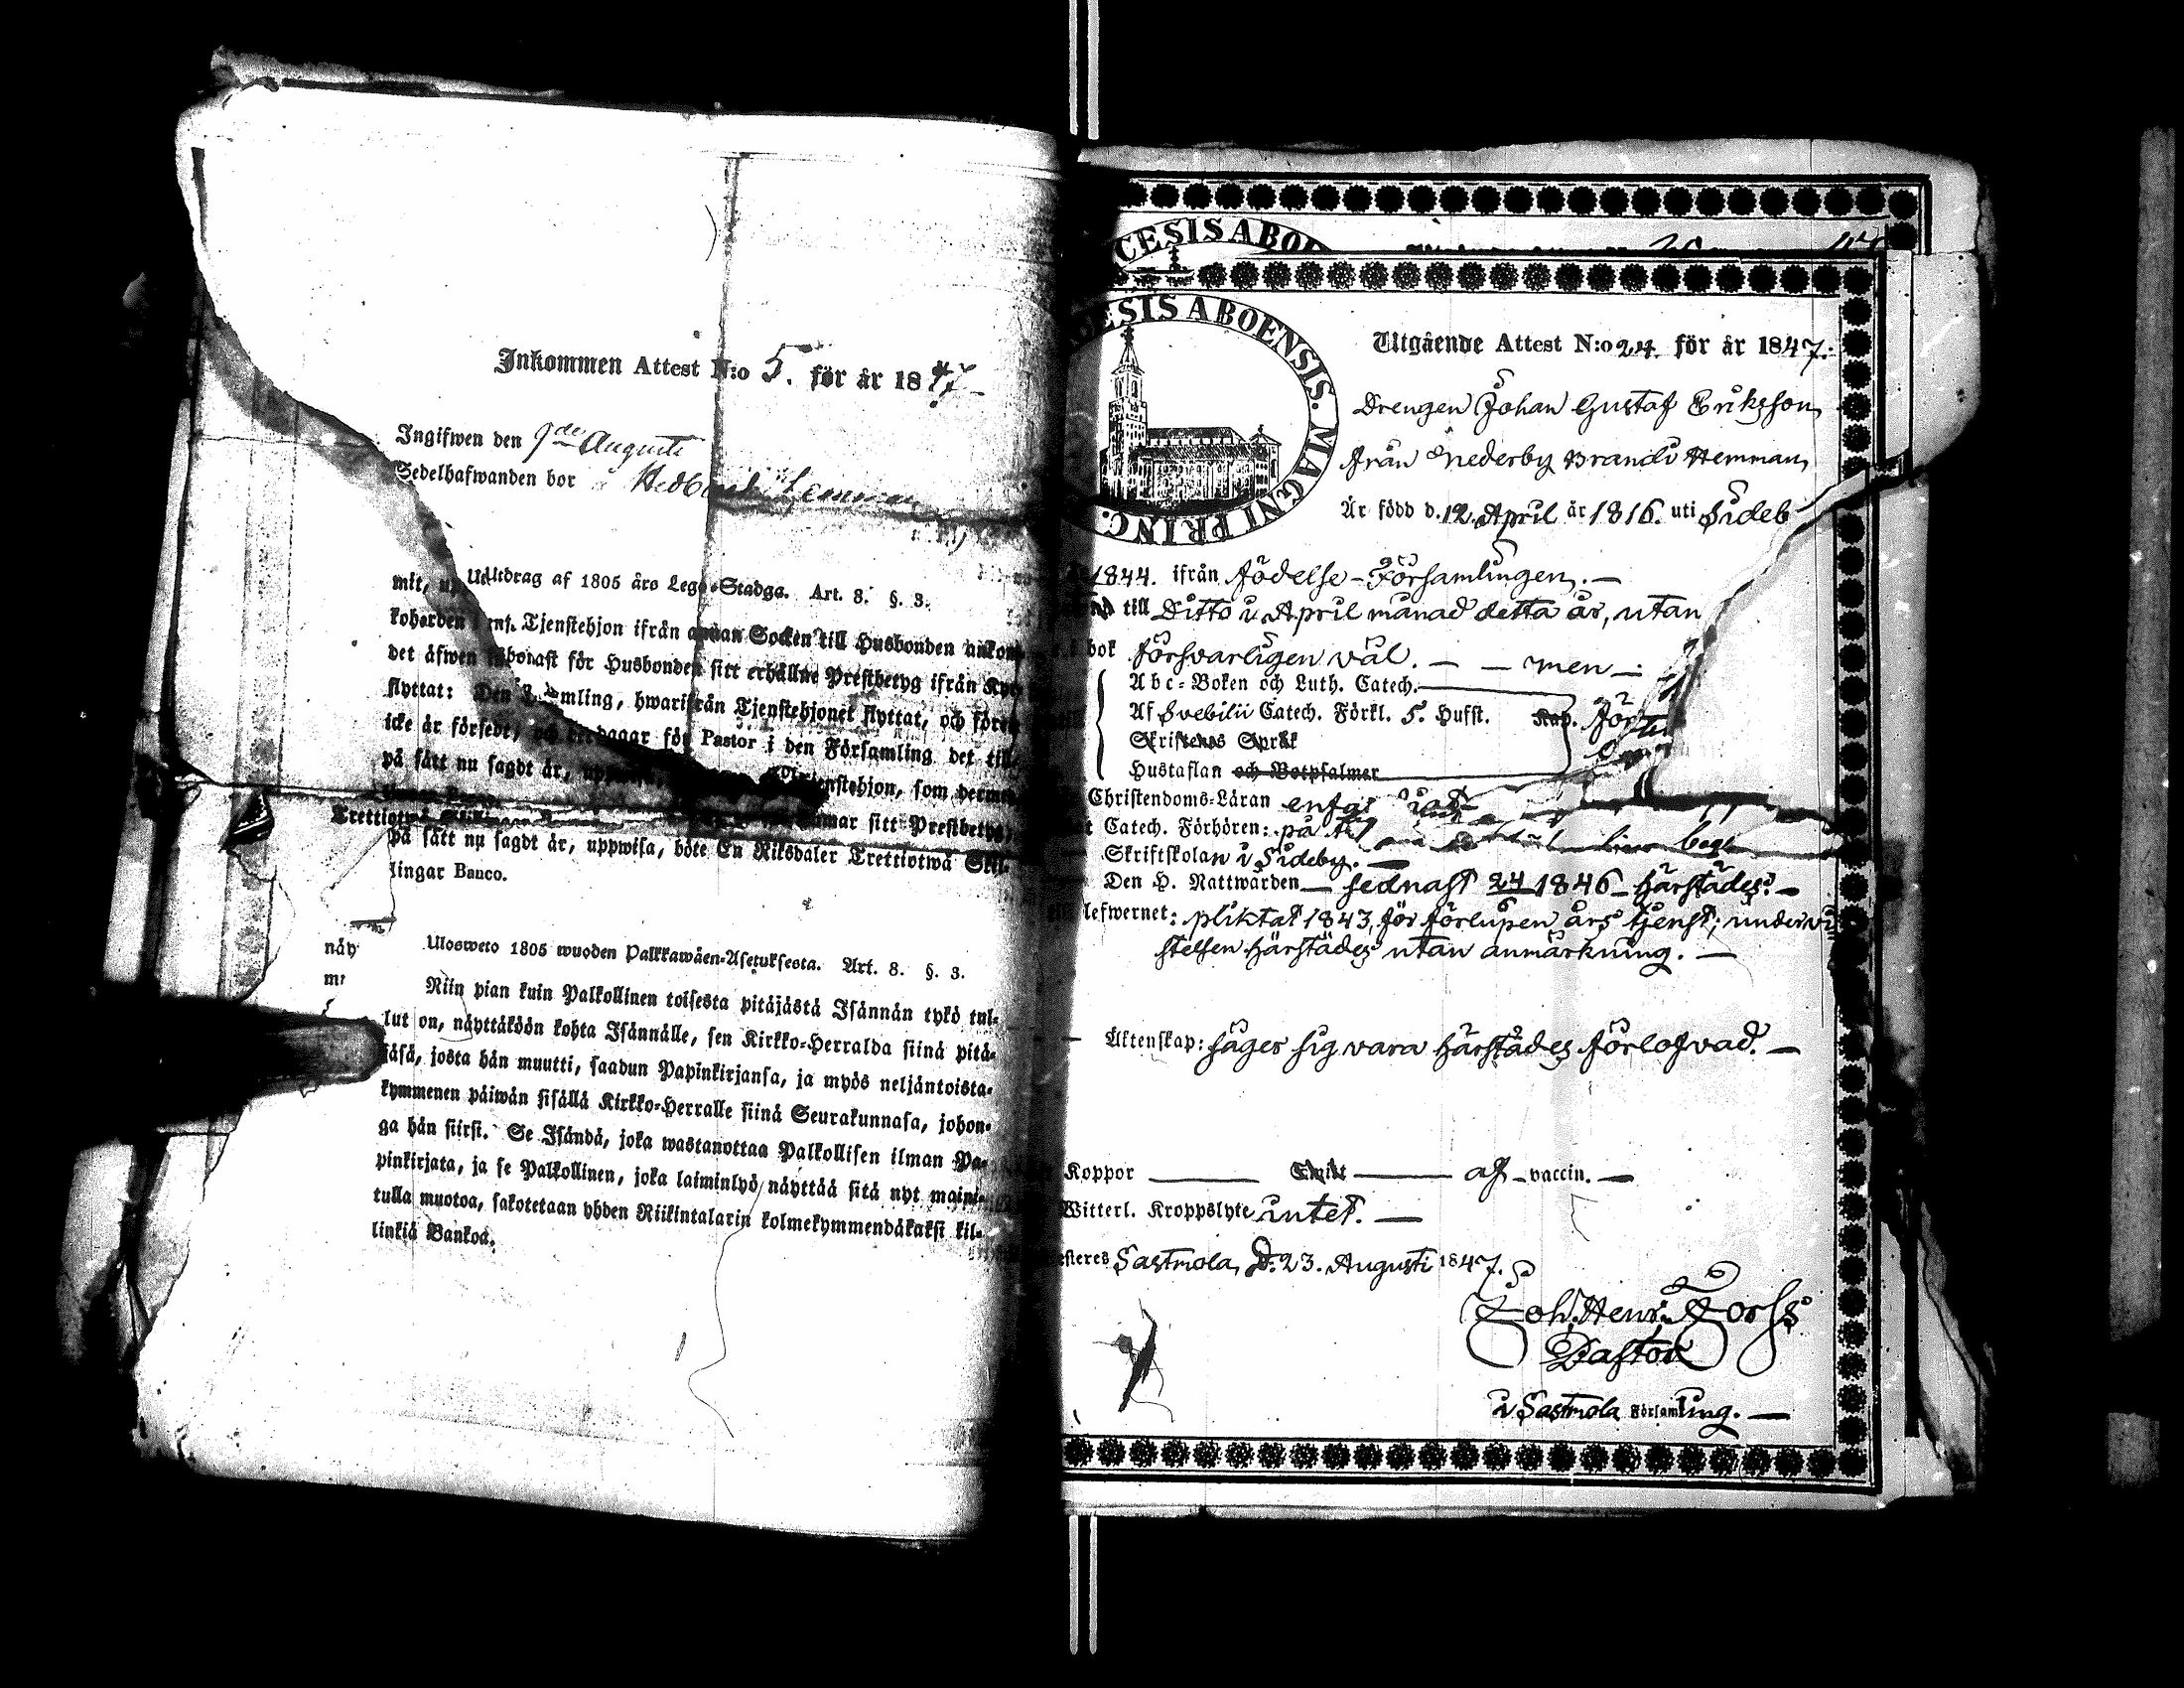 Inkommen Attest N:o 5. för år 1847
Ingifwen den 9de Augusti
Sedelhafwanden bor
Utdrag af 1805 års Lego-Stadga. Art. 8. §. 3.
koherden Tjenstehjon ifrån annan Socken till Husbonden ankom-
det äfwen för Husbonden sitt erhållne Prestbetyg ifrån Kyr-
flyttat: Den mling, hwarifrån Tjenstehjonet flyttat, och
icke är försedt, dagar för Pastor i den Församling det till-
på sätt nu sagdt är, Tjenstehjon, som
Trettiotwå sitt Prestbetyg,
på sätt nu sagdt är, uppwisa, böte En Riksdaler Trettiotwå Skil-
lingar Banco.
näy
Ulosweto 1805 wuoden Palkkawäen-Asetuksesta. Art. 8. §. 3.
Niin pian kuin Palkollinen toisesta pitäjästä Isännän tykö tul-
lut on, näyttäköön kohta Isännälle, sen Kirkko-Herralda siinä pitä-
jäsä, josta hän muutti, saadun Papinkirjansa, ja myös neljäntoista-
kymmenen päiwän sisällä Kirkko-Herralle siinä Seurakunnasa, johon-
ga hän siirsi. Se Isändä, joka wastanottaa Palkollisen ilman Pa-
pinkirjata, ja se Palkollinen, joka laiminlyö näyttää sitä nyt maini-
tulla muotoa, sakotetaan yhden Riikintalarin kolmekymmendäkaksi kil-
linkiä Bankoa.
CESIS ABOE
ESIS ABOENSIS. MAGNI PRINC.
Utgående Attest N:o 24. för år 1847.
Drengen Johan Gustaf Eriksson
från Nederby Brandi Hemman,
Är född d. 12. April år 1816. uti Sideb
1844. ifrån födelse-Församlingen.—
till Ditto i April månad detta år, utan
bok försvarligen väl. — — men —
Abc-Boken och Luth. Catech.
Af Svebilii Catech. Förkl. 5. Hufst. Kap.
Skriftenes Språk
Hustaflan och Botpsalmer
Christendoms-Läran
Catech. Förhören: på
Skriftskolan i Sideby. —
Den H. Nattwarden — sednast 24 1846 härstädes. —
lefwernet: pliktat 1843, för förlupen års tjenst; undervi-
stelsen härstädes utan anmärkning. —
Äktenskap: säges sig vara härstädes förlofvad. —
Koppor ——— ——— af vaccin. —
Witterl. Kroppslyte intet. —
esteres Sastmola, D. 23. Augusti 1847.
Joh. Henr. Forss
Pastor
i Sastmola Församling. —